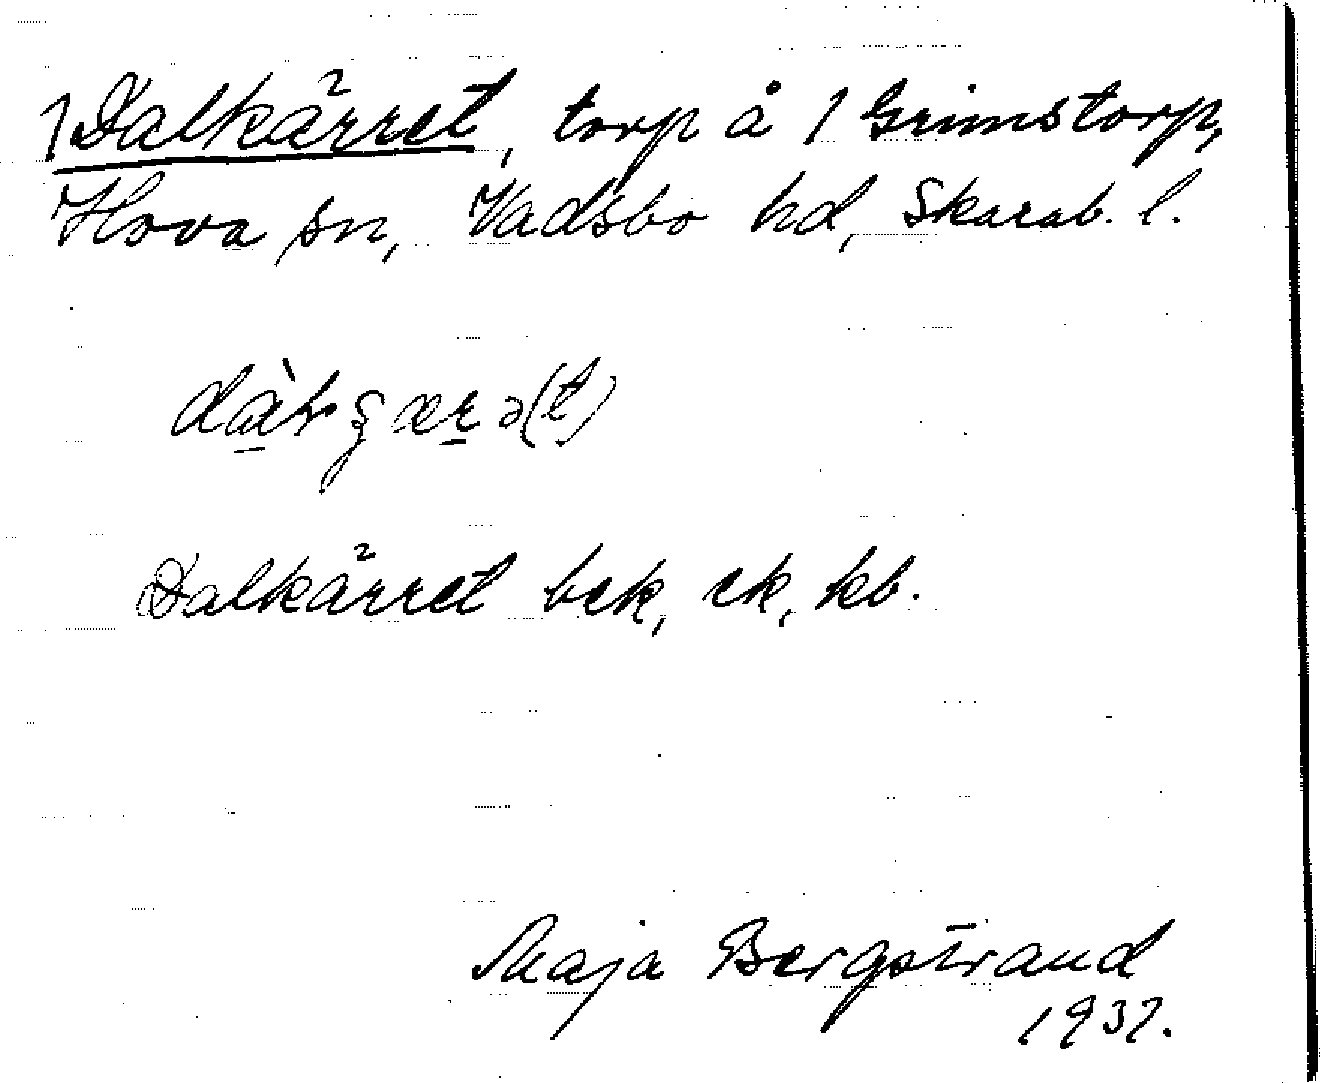 1 Dalkärret, torp å 1 Grimstorp,
Hova sn, Vadsbo hd, Skarab. l.
Dalkärret bek, ek, kb.
Maja Bergstrand
1937.